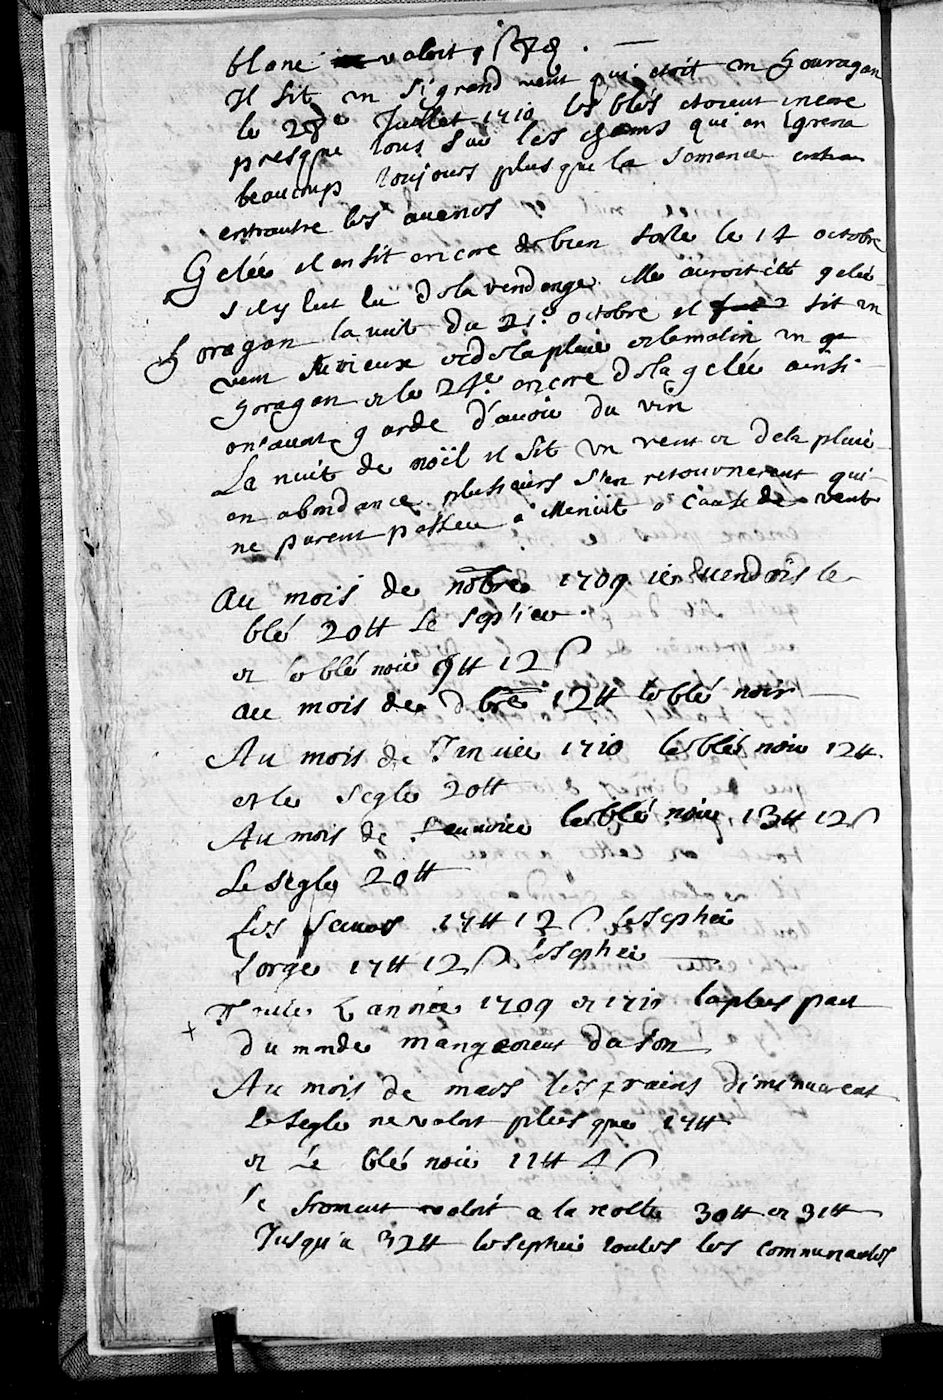 blanc valoit 
Il fit un si grand vent qui etoit un houragan
le 28e Juillet 1710 les blés etoient encore
presque tous sur les chams qui en Egrena
beaucoup toujours plus que la semence
entrautre les auenos
Gelée il en fit encore de bien forte le 14 octobre
s il y eut eu de la vendange elle auroit été gelée
horagan la nuit du 21e octobre il fit un
vent furieux et de la pluie et le matin un
horagan et le 24e encore de la gelée ainsi
on auait garde d'auoir du vin
La nuit de noël il fit un vent et de la pluie
en abondance plusieurs s'en retournerent qui
ne purent passer a Menuit a cause de vent
Au mois de nobre 1709 ier vendois le
blé 20tt Le septier
et le blé noir 9tt 12s
au mois de Dbre 12tt le blé noir
Au mois de Januier 1710 le blé noir 12tt
et le segle 20tt
Au mois de feuurier le blé noir 13tt 12s
Le segle 20tt
Les feues 17tt 12s le sephei
L'orge 17tt 12s le sephei
Toute L'année 1709 et 1710 la plus part
+ du monde mangeoient du son
Au mois de mars les grains diminuerent
Le segle ne valoit plus que 17tt
et Le blé noir 11tt 4s
le froment valoit a la reolle 30tt et 31tt
Jusqu'a 32tt le sephei toutes les communautes